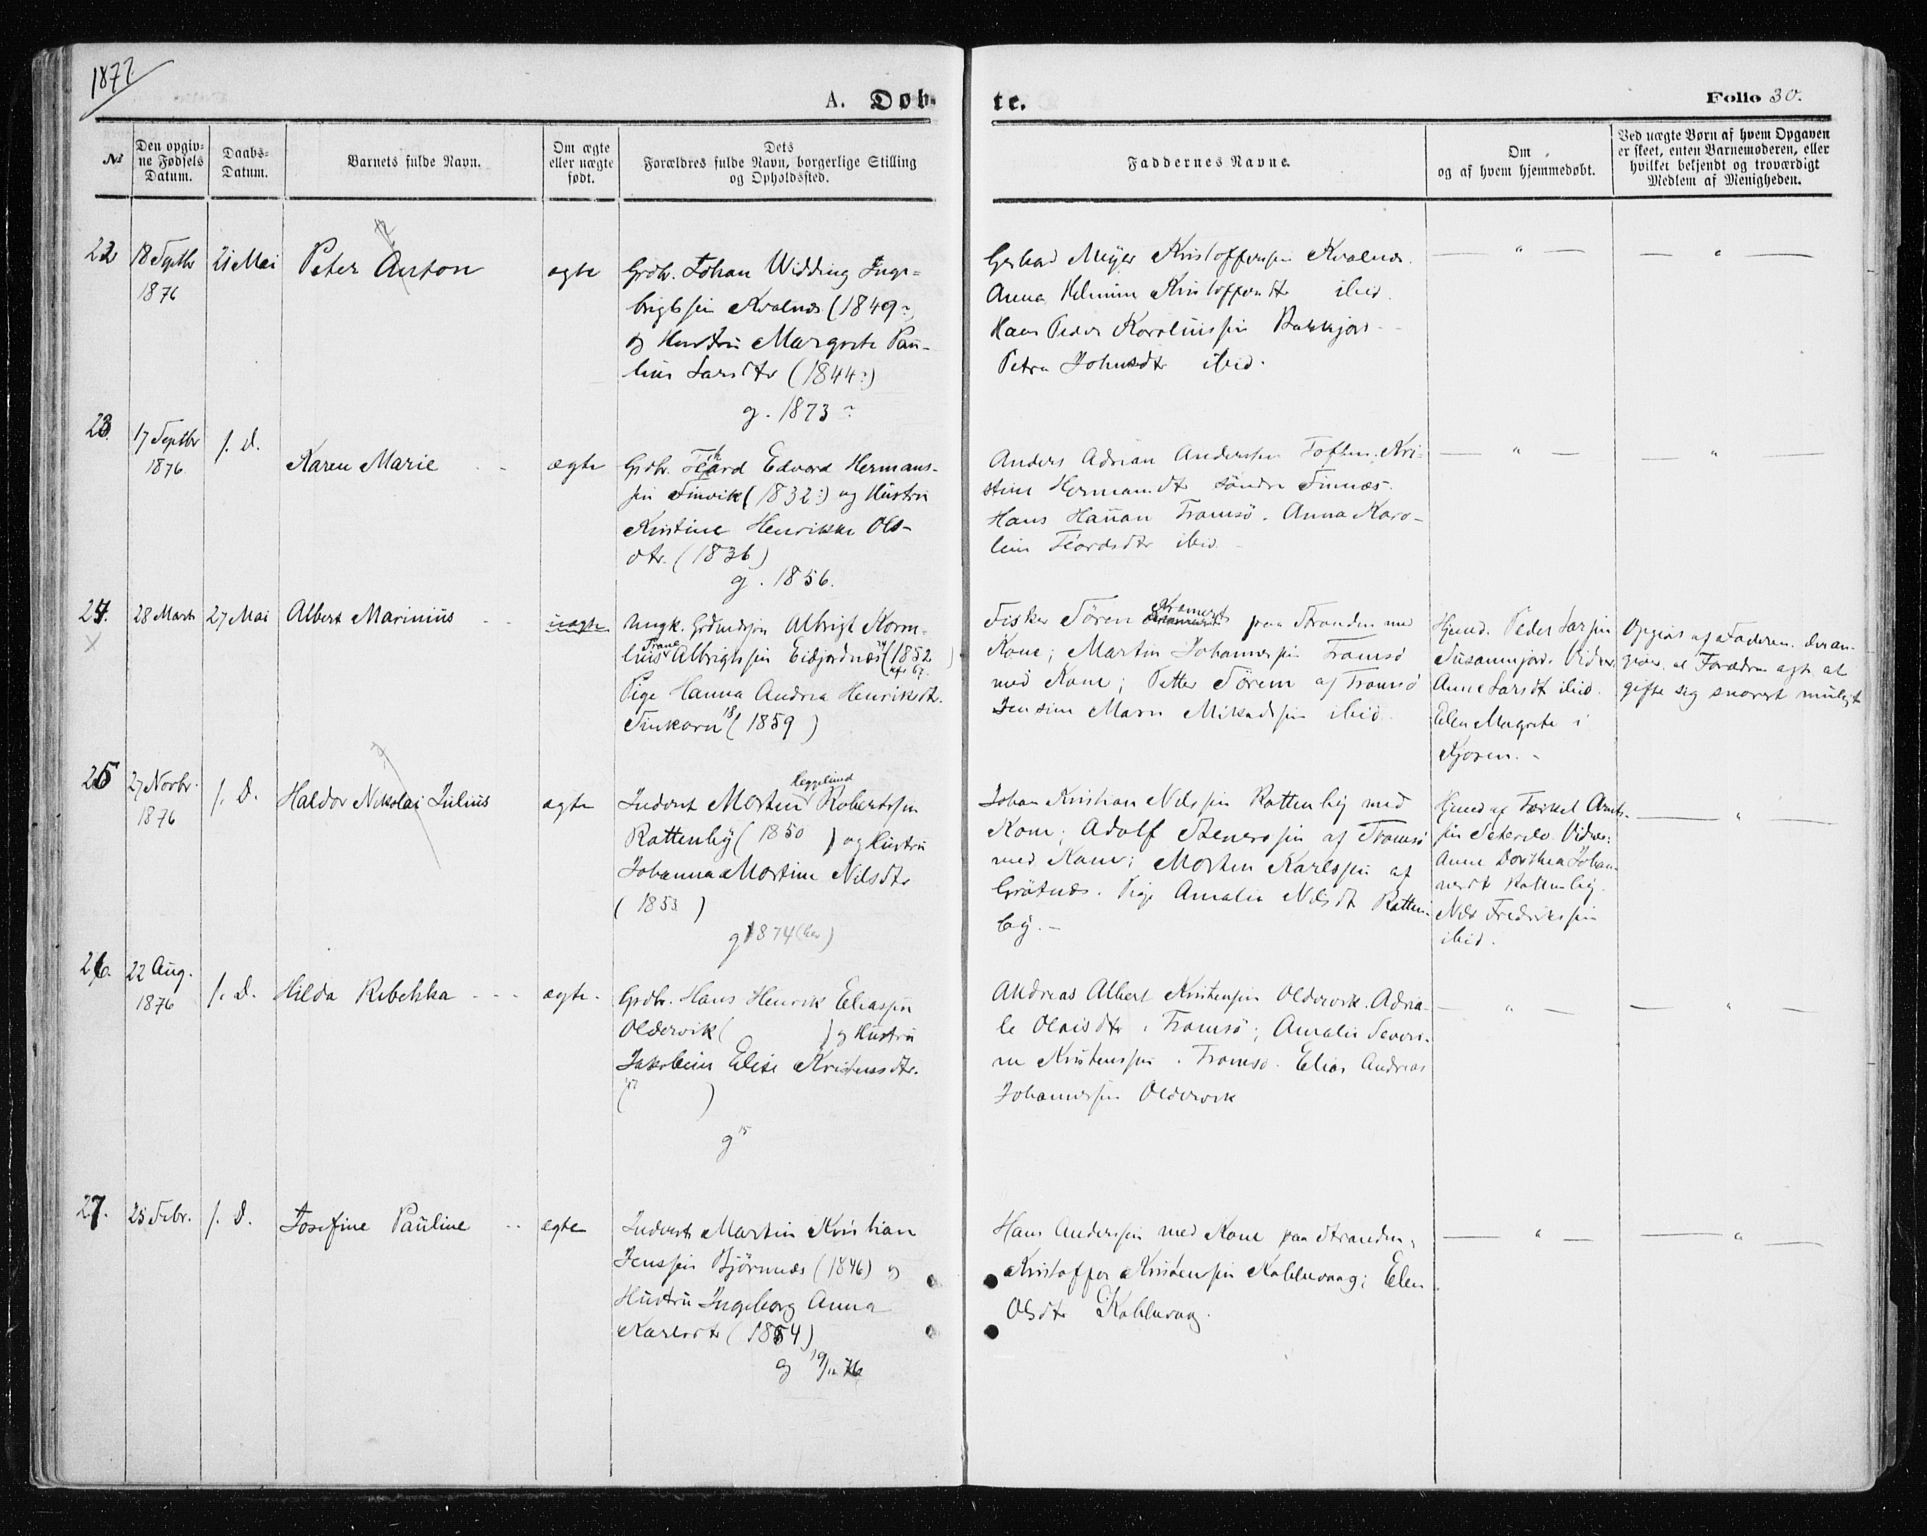 1877
A. Døb-
te.
Folio 30.
No
Den opgiv-
ne Fødsels
Datum.
Daabs-
Datum.
Barnets fulde Navn.
Om ægte
eller uægte
født.
Dets
Forældres fulde Navn, borgerlige Stilling
og Opholdssted.
Faddernes Navne.
Om
og af hvem hjemmedøbt.
Ved uægte Børn af hvem Opgaven
er skeet, enten Barnemoderen, eller
hvilket bekjendt og troværdigt
Medlem af Menigheden.
22
18 Septbr
1876
21 Mai
Peter Anton
ægte
Grdbr. Johan Widding Inge-
brigtssen Kvalnæs (1849?
og Hustru Margrete Pau-
line Larsdtr (1844?)
g. 1873?
Gerhard Meyer Kristofferssen Kvalnæs.
Anna Kristoffersdtr ibid.
Hans Peder Karoliussen
Petra Johnsdtr ibid.
— " —
— " —
23.
17 Septbr
1876
s. D.
Karen Marie
ægte
Grdbr. Edvard Hermans-
sen Finvik (1832?) og Hustru
Kristine Henrikke Ols-
dtr. (1836)
g. 1856.
Anders Adrian Anderssen Toften. Kri-
stine Hermandtr Søndre Finnæs.
Hans Hansen Tromsø. Anna Karo-
line ibid.
— " —
— " —
24.
28 Marts
27 Mai
Albert Marinius
uægte
Ungk. Grdmdssøn Albrigt Korne-
lius Albrigtssen Eidjordnæs (1852)
Pige Hanna Andrea Henriksdtr.
Finkorn (1859)
Fisker Søren paa Stranden med
Kone; Martin Johannessen Tromsø
med Kone; Petter Sørem af Tromsø
Jensine Marie ibid.
Hjmd. Peder Larsen
Vidner
Anne Larsdt ibid.
Elen Margrete i
Kjosen.
Opgivet af Faderen. der an-
giver, at Forældrene agte at
gifte sig snarest muligt
25
27 Novbr.
1876
s. D.
Haldor Nikolai Julius
ægte
Inderst Morten Heggelund Robertssen
Rottenby (1850) og Hustru
Johanna Martine Nilsdtr
(1853)
g 1874 (her)
Johan Kristian Nilssen Rottenby med
Kone; Adolf Steenerssen af Tromsø
med Kone; Morten Karlssen af
Grøtnæs. Pige Amalie Nilsdt Rotten-
by.
Hjmd af Torkel Arnts-
sen Vidner:
Anne Dorthea Johan-
nesdt Rottenby.
Nils Fredrikssen
ibid.
— " —
26.
22 Aug.
1876
s. D.
Hilda Rebekka
ægte.
Grdbr. Hans Henrik Eliassen
Oldervik ( ) og Hustru
Jakobine Elise Kristensdtr.
( )
g
Andreas Albert Kristensen Oldervik. Adria-
ne Olaisdtr i Tromsø; Amalie Severi-
ne Kristenssen i Tromsø. Elias Andreas
Johannessen Oldervik
— " —
— " —
27.
25 Febr.
s. D.
Josefine Pauline
ægte
Inderst Martin Kristian
Jenssen Bjørnnæs (1846) og
Hustru Ingeborg Anna
Karlsdtr (1854)
g 19/12 76
Hans Anderssen med Kone paa Stranden;
Kristoffer Kristensen Kobbevaag; Elen
Olsdtr Kobbevaag.
— " —
— " —